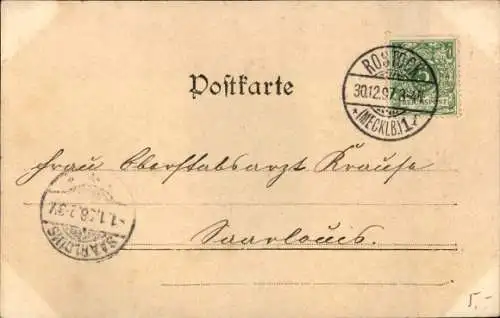 Postkarte
ROSTOCK
30.12.97. 3-4N.
* (MECKLB.) 1 *
5
REICHSPOST
Frau Oberstabsarzt Krause
Saarlouis.
SAARLOUIS
1.1.98.
5.-